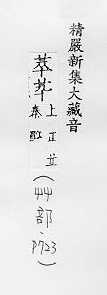 精嚴新集大藏音
萃
上正並
秦
(艸部、P723)